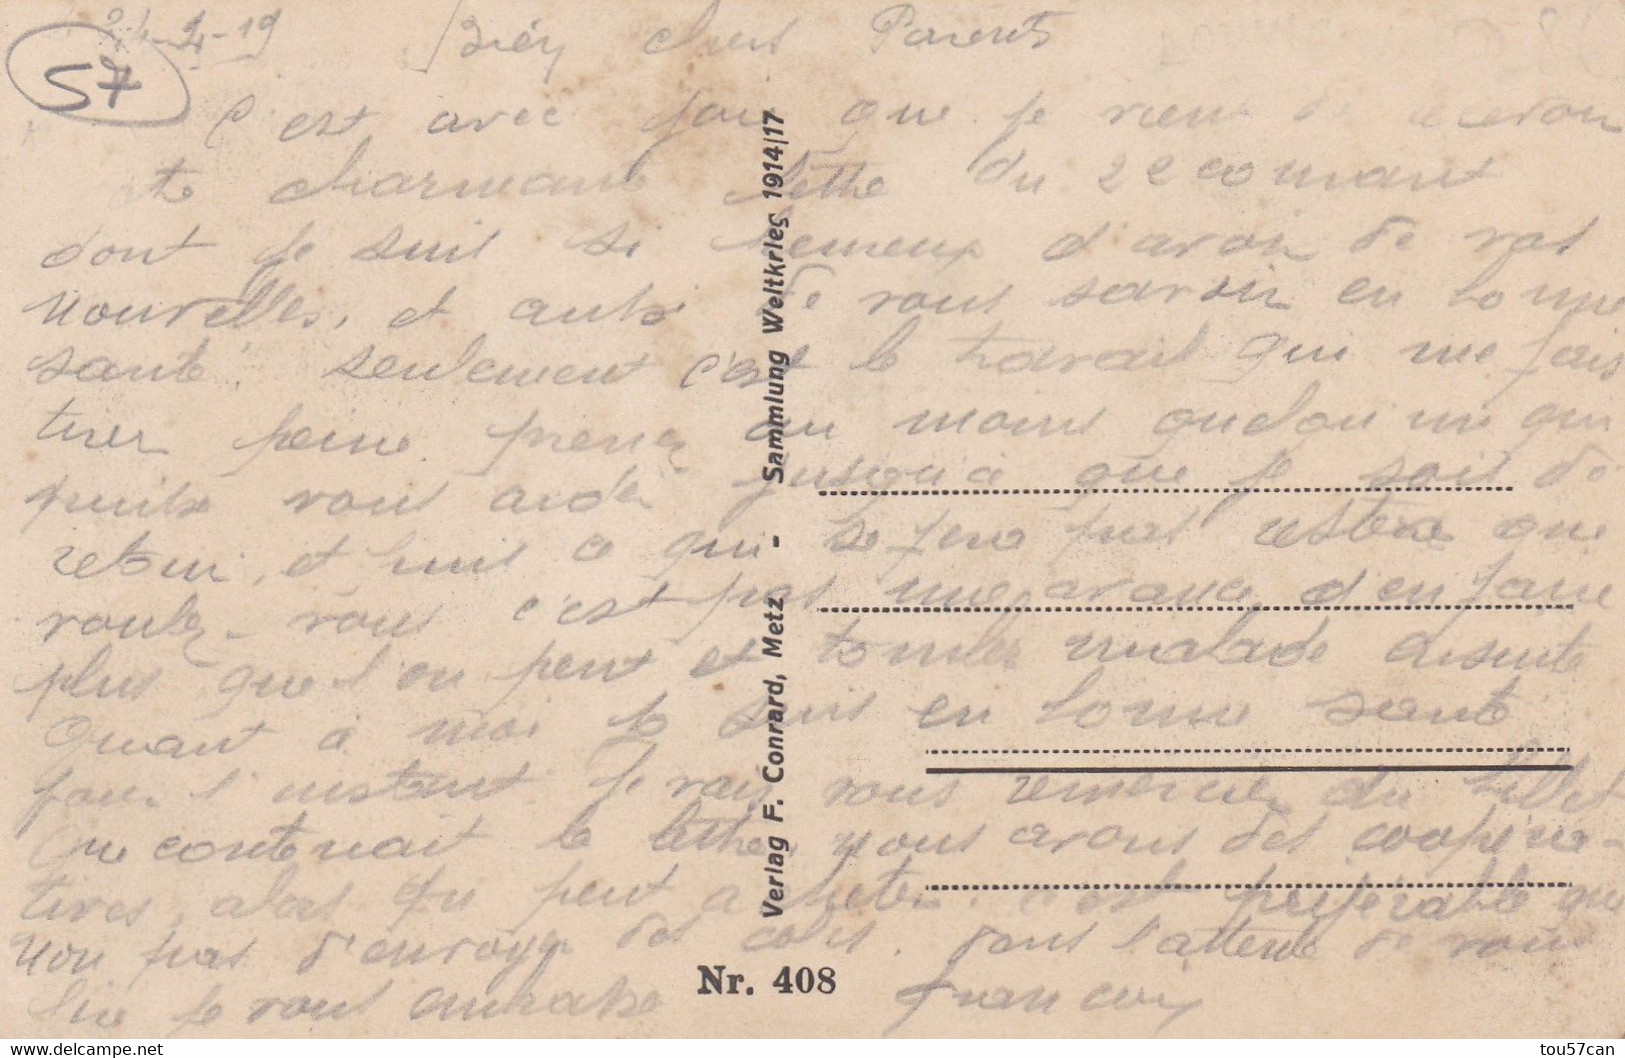 24-2-19 Bien chers Parents
57
C'est avec joie que je viens de recevoir
ta charmante lettre du 22 courant
dont je suis si heureux d'avoir de vos
nouvelles, et aussi de vous savoir en bonne
santé. seulement c'est le travail qui me fais
tirer peine prenez au moins quelqu'un qui
puisse vous aider jusqu'à que je sois de
retour, et puis ce qui se fera pas restera que
voulez-vous c'est pas une avance d'en faire
plus que l'on peut et tomber malade ensuite
Quant à moi je suis en bonne santé
pour l'instant je vais vous remercier du billet
que contenait la lettre, nous avons des coopéra-
tives, alors qu peut acheter. c'est préférable que
non pas d'envoyer des colis. Dans l'attente de vous
lire je vous embrasse François
Verlag F. Conrard, Metz - Sammlung Weltkrieg 1914/17
Nr. 408
tou57can